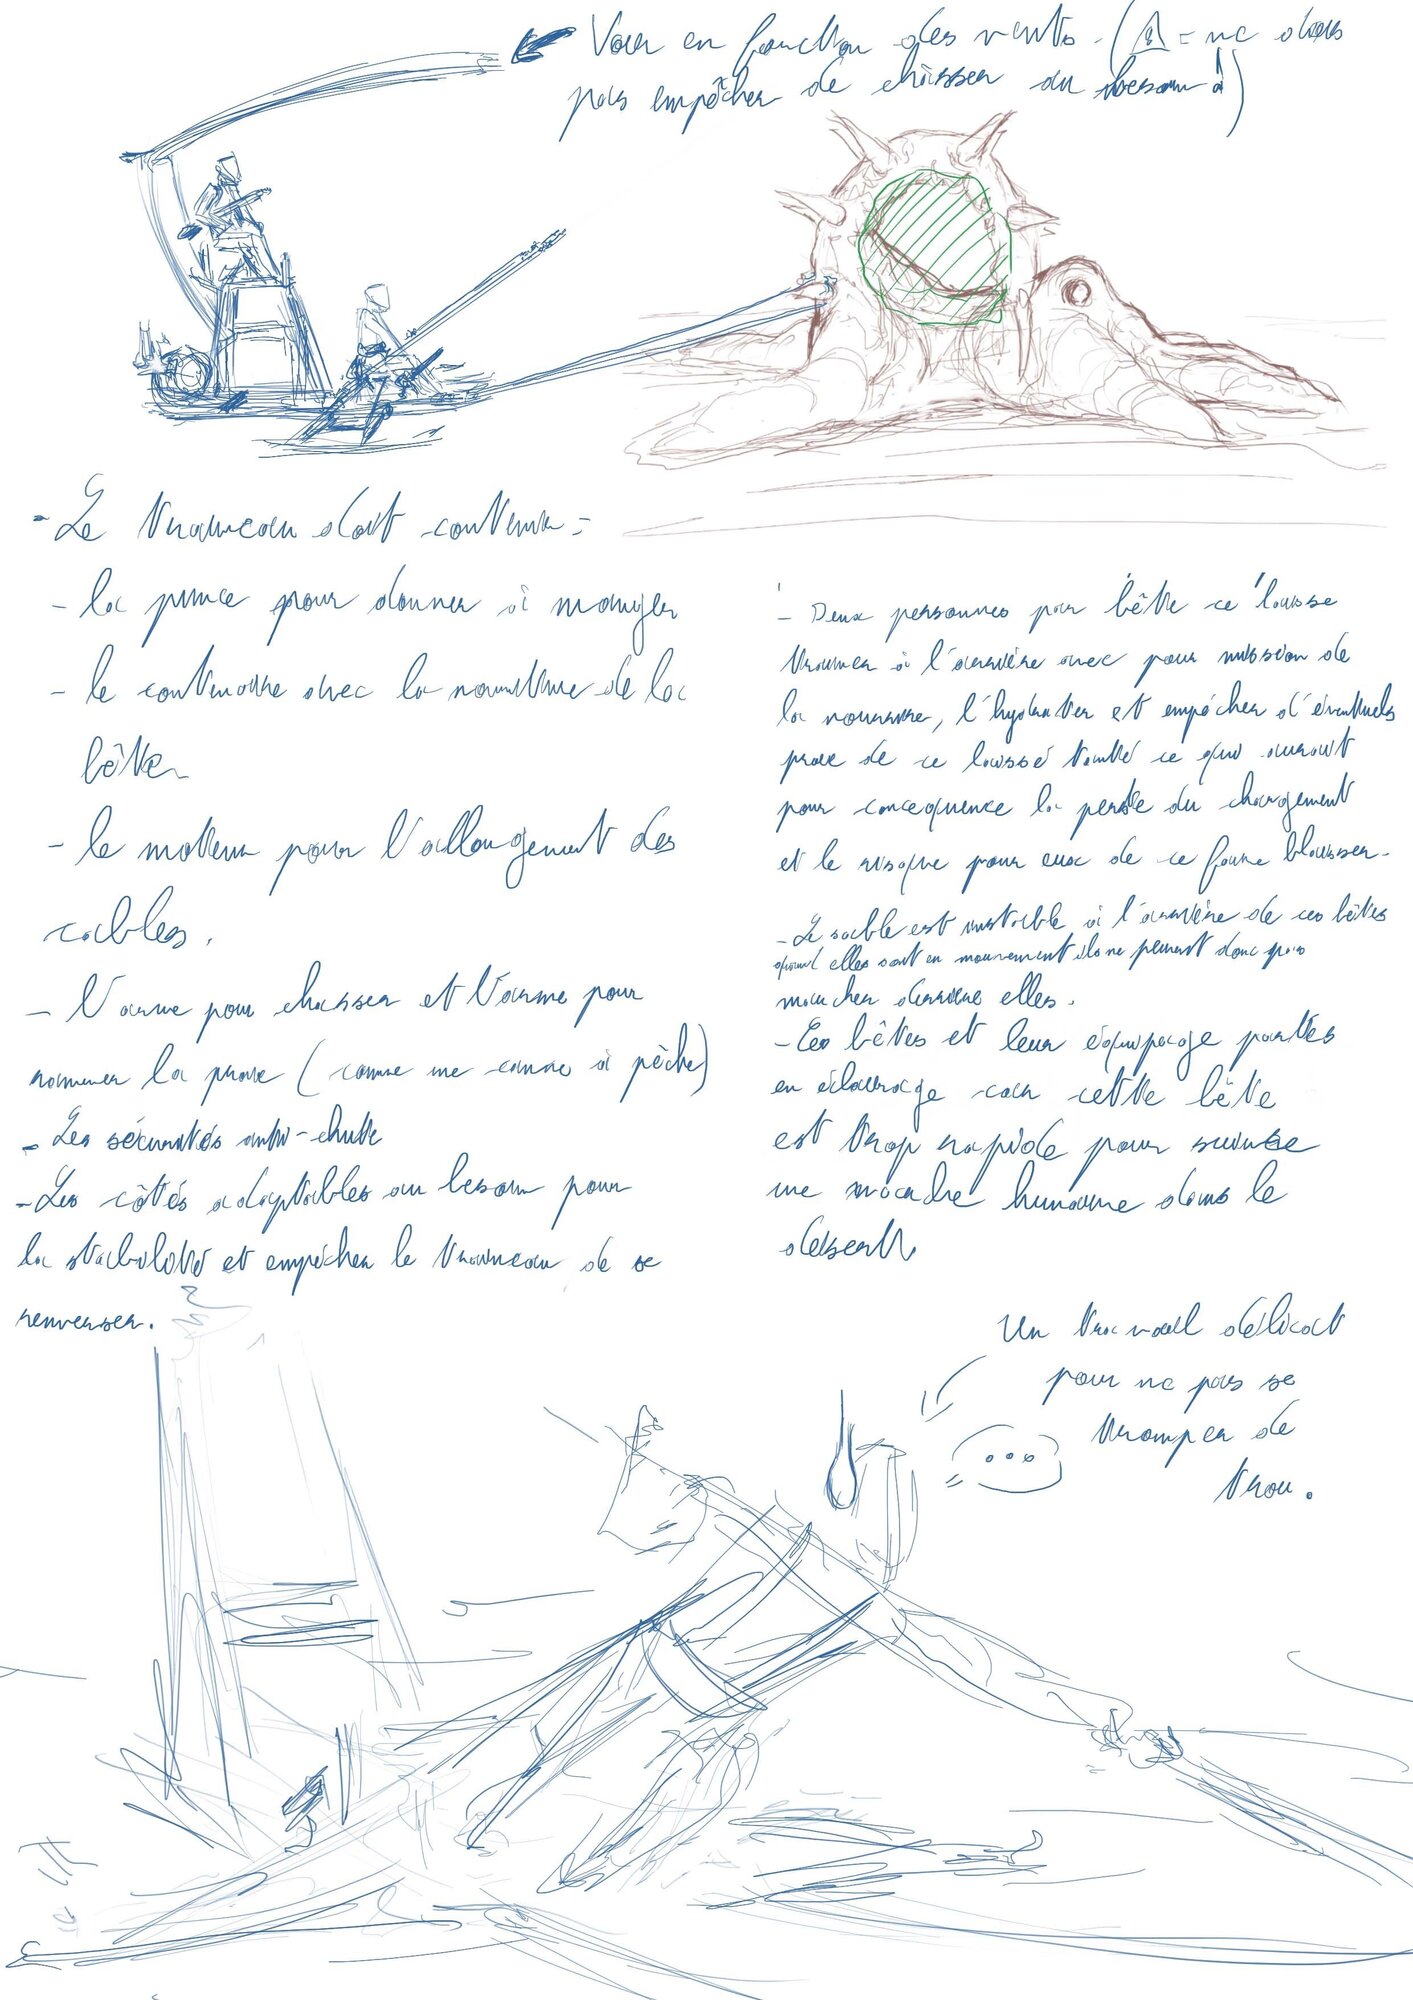 Voir en fonction des vents. (⚠ = ne dois
pas empêcher de chasser au besoin !)
- Le traineau doit contenir =
- la pince pour donner à manger
- le contenaire avec la nourriture de la
bête
- le moteur pour l'allongement des
cables.
- l'arme pour chasser et l'arme pour
ramener la proie (comme une canne à pêche)
- Les sécurités anti-chute
- Les côtés adaptables au besoin pour
la stabilité et empêcher le traineau de se
renverser.
- Deux personnes par bête ce laisse
trainer à l'arrière avec pour mission de
la nourrire, l'hydrater et empêcher d'éventuels
proie de ce laissé tenté ce qui aurait
pour concequence la perte du chargement
et le risque pour eux de ce faire blesser.
- Le sable est instable à l'arrière de ces bêtes
quand elles sont en mouvement ils ne peuvent donc pas
marcher derrière elles.
- Ces bêtes et leur équipage partes
en éclairage car cette bête
est trop rapide pour suivre
une escadre humaine dans le
désert.
Un travail délicat
pour ne pas se
tromper de
trou.